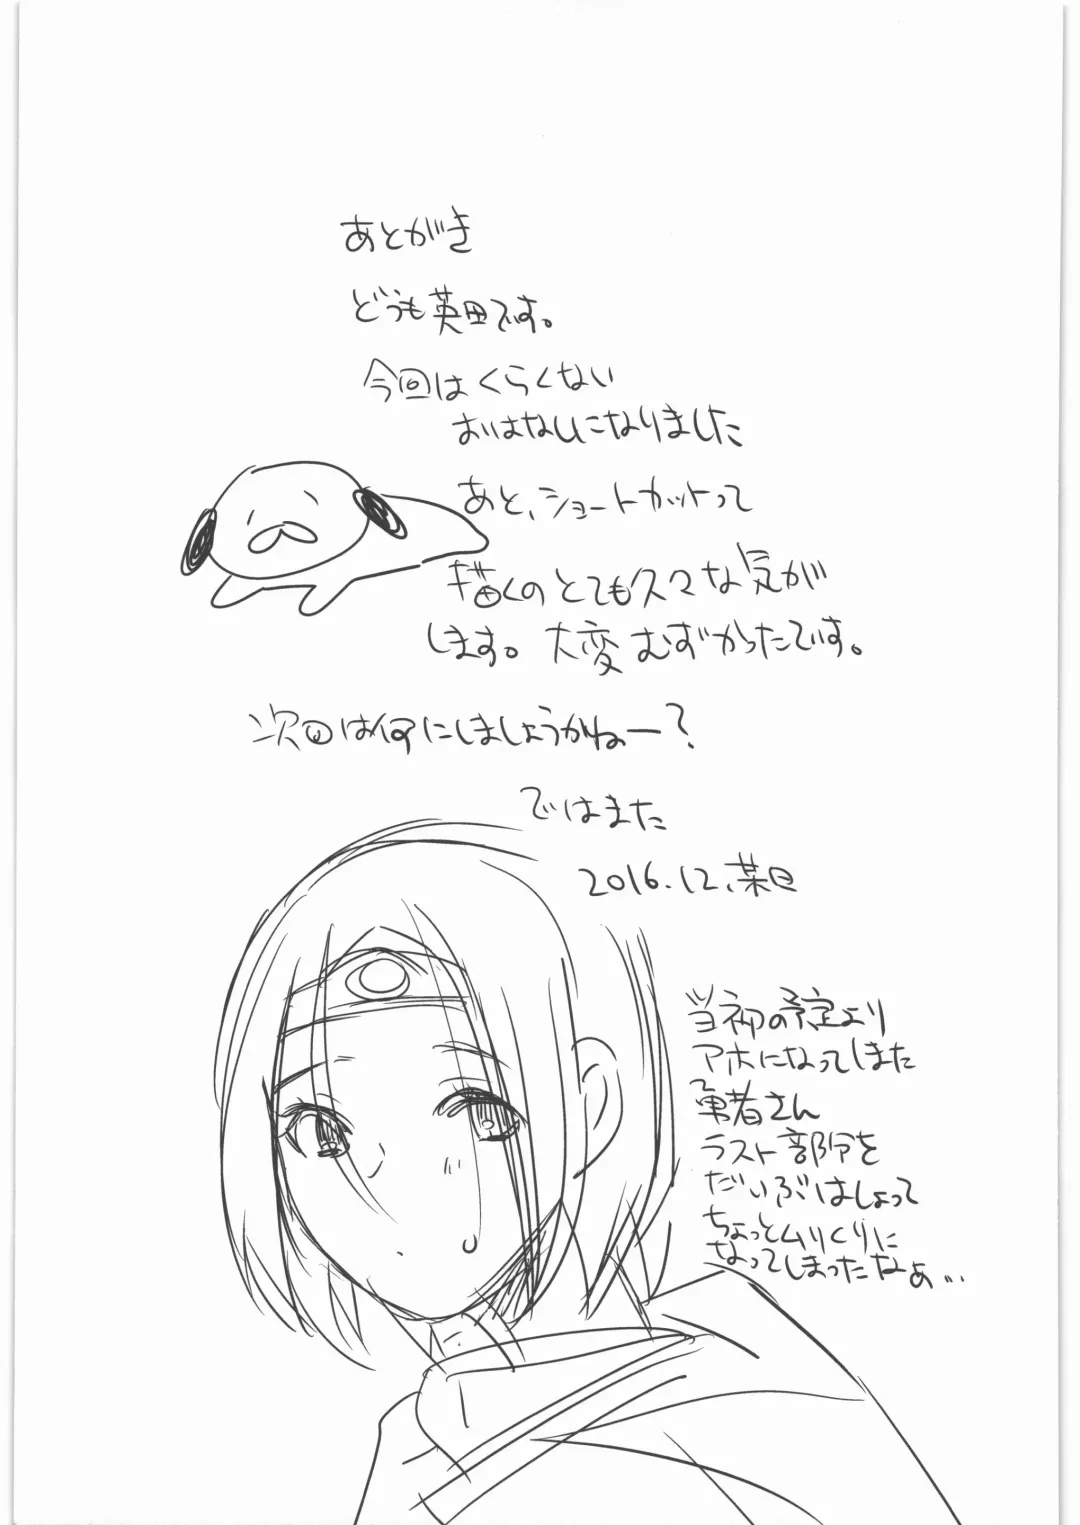 あとがき
どうも英田です。
今回はくらくない
おはなしになりました
あと、ショートカットって
描くのとても久々な気が
します。大変むずかったです。
次回は何にしましょうかねー?
ではまた
2016.12.某日
当初の予定より
アホになってしまた
勇者さん
ラスト部分を
だいぶはしょって
ちょっとムりくりに
なってしまったなぁ…